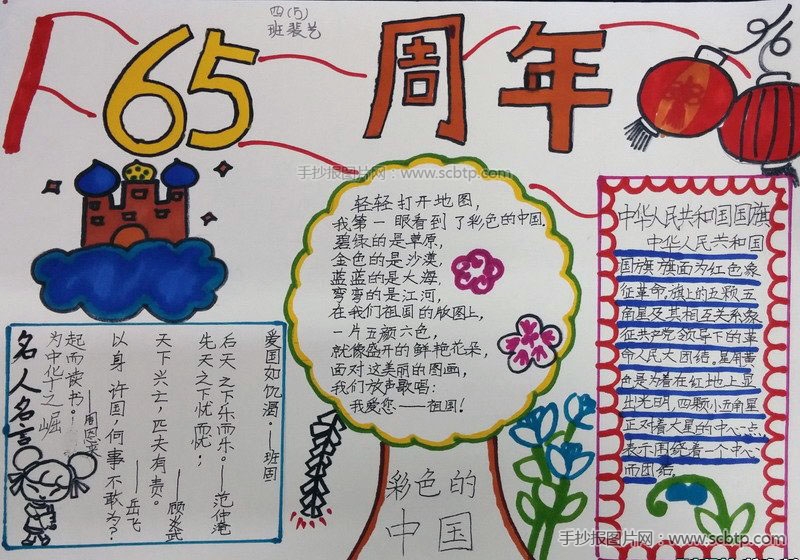 四(5)
班裴艺
65周年
手抄报图片网·www.scbtp.com
轻轻打开地图,
我第一眼看到了彩色的中国.
碧绿的是草原,
金色的是沙漠,
蓝蓝的是大海.
弯弯的是江河,
在我们祖国的版图上,
一片五颜六色,
就像盛开的鲜艳花朵,
面对这美丽的图画,
我们放声歌唱:
我爱您——祖国!
彩色的
中国
中华人民共和国国旗
中华人民共和国
国旗旗面为红色象
征革命,旗上的五颗五
角星及其相互关系象
征共产党领导下的革
命人民大团结,星用黄
色是为着在红地上显
出光明,四颗小五角星
正对着大星的中心一点
表示围绕着一个中心
而团结
爱国如饥渴。——班固
后天下之乐而乐。——范仲淹
先天之下忧而忧;
天下兴亡,匹夫有责。
——顾炎武
以身许国,何事不敢为?
——岳飞
起而读书。——周恩来
为中华之崛
名人名言
手抄报图片网·www.scbtp.com